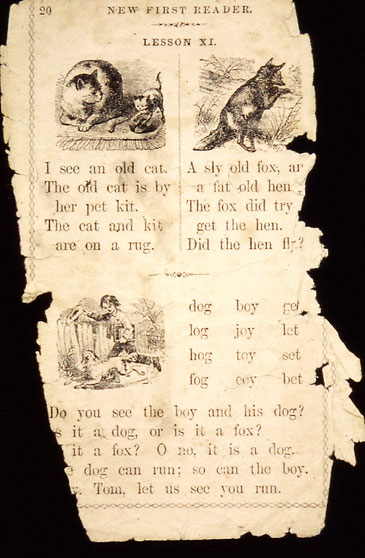 20 NEW FIRST READER.
LESSON XI.
I see an old cat.
The old cat is by
her pet kit.
The cat and kit
are on a rug.
A sly old fox, ar
a fat old hen
The fox did try
get the hen.
Did the hen fly?
dog boy get
log joy let
hog toy set
fog coy bet
Do you see the boy and his dog?
s it a dog, or is it a fox?
it a fox? O no, it is a dog.
dog can run; so can the boy.
Tom, let us see you run.